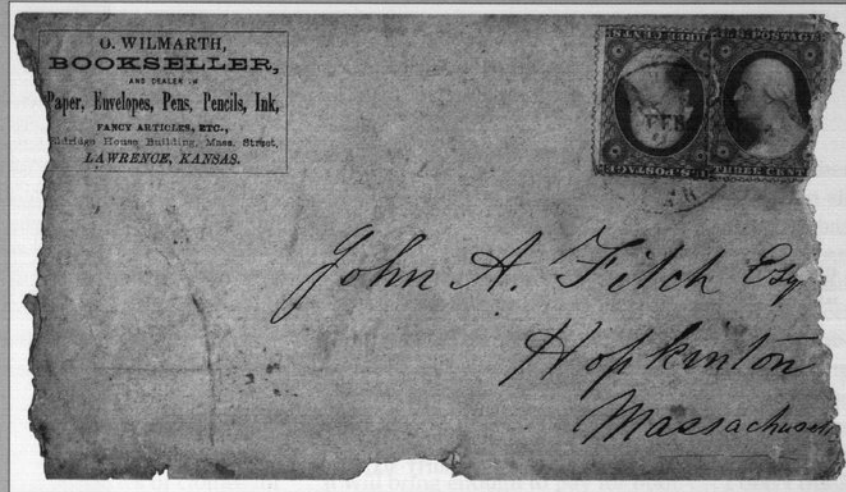 O. WILMARTH,
BOOKSELLER,
AND DEALER IN
Paper, Envelopes, Pens, Pencils, Ink,
FANCY ARTICLES, ETC.,
Eldridge House Building, Mass. Street,
LAWRENCE, KANSAS.
THREE CENTS
U.S. POSTAGE
FEB
U.S. POSTAGE
THREE CENT
John A. Fitch Esq
Hopkinton
Massachusetts